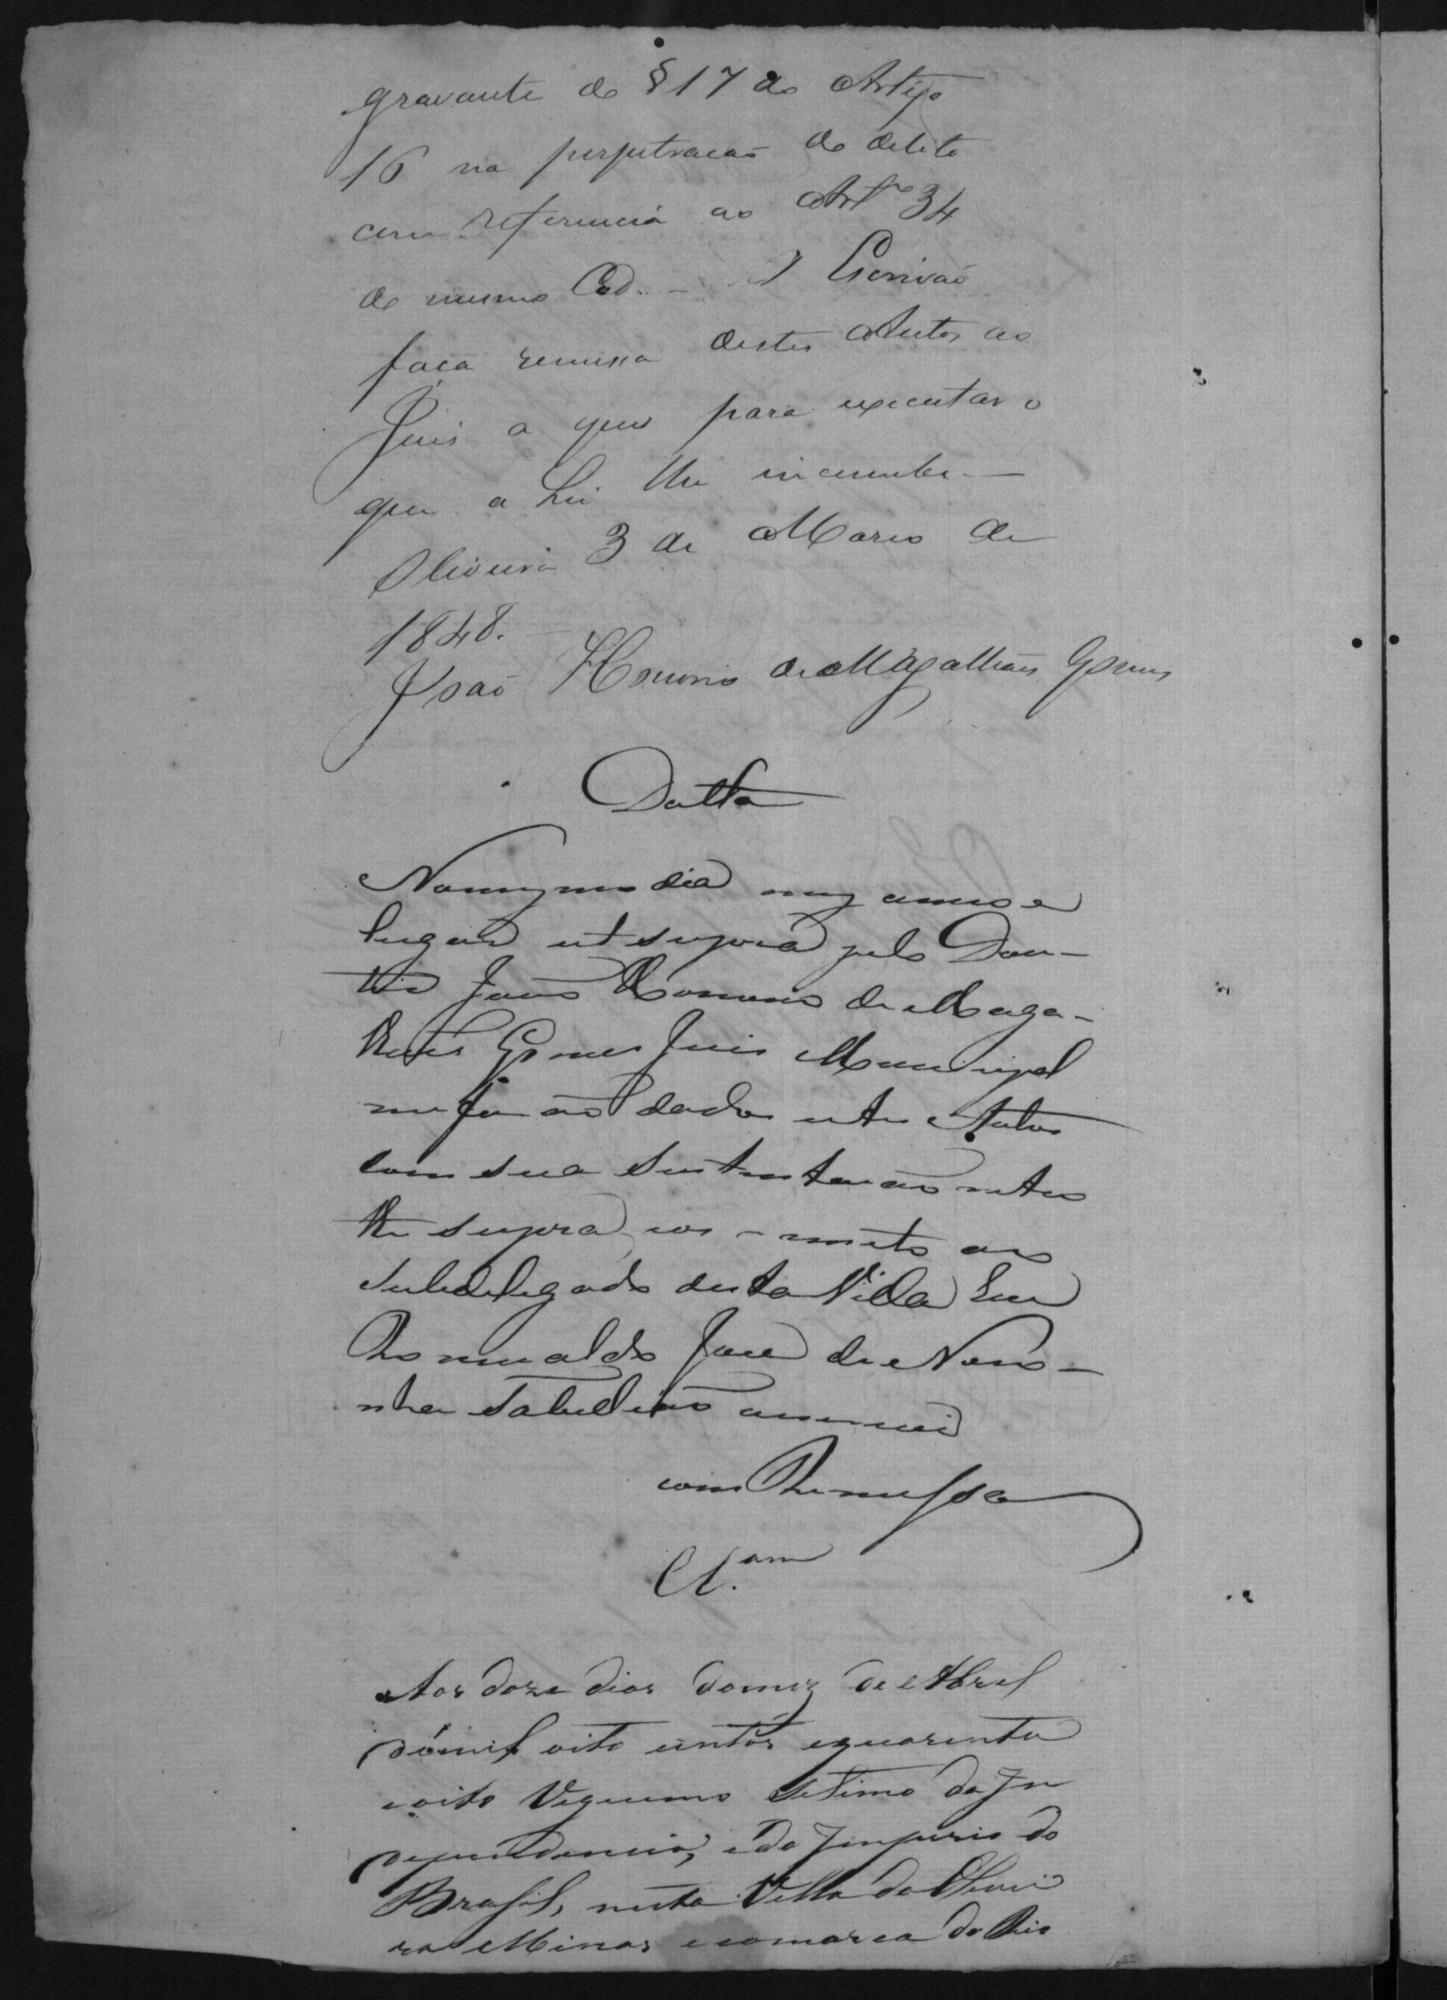 gravante do § 17 do Artigo
16 na perpetracaõ do delito
com referencia ao Artº 34
do mesmo Cod. — O Escrivaõ
faça remessa destes Autos ao
Juis a quo para executar o
que a Lei lhe incumbe. —
Oliveira 3 de Março de
1848.
Joaõ Honorio de Magalhaes Gomes
Datta
No mesmo dia mez anno e
lugar ut supra pelo Dou-
tor Joaõ Honorio de Maga-
lhaes Gomes Juis Municipal
me foraõ dados estes Autos
com sua sustentaçaõ retro
supra, e os remeto ao
Subdelegado desta Villa Eu
Romualdo José de Noro-
nha Tabeliaõ escrevi
com Remessa
Aos doze dias do mez de Abril
de mil oito centos e quarenta
e oito Vegecimo setimo da In
dependencia, e do Imperio do
Brasil, nesta Villa da Olivei
ra Minas e comarca do Rio